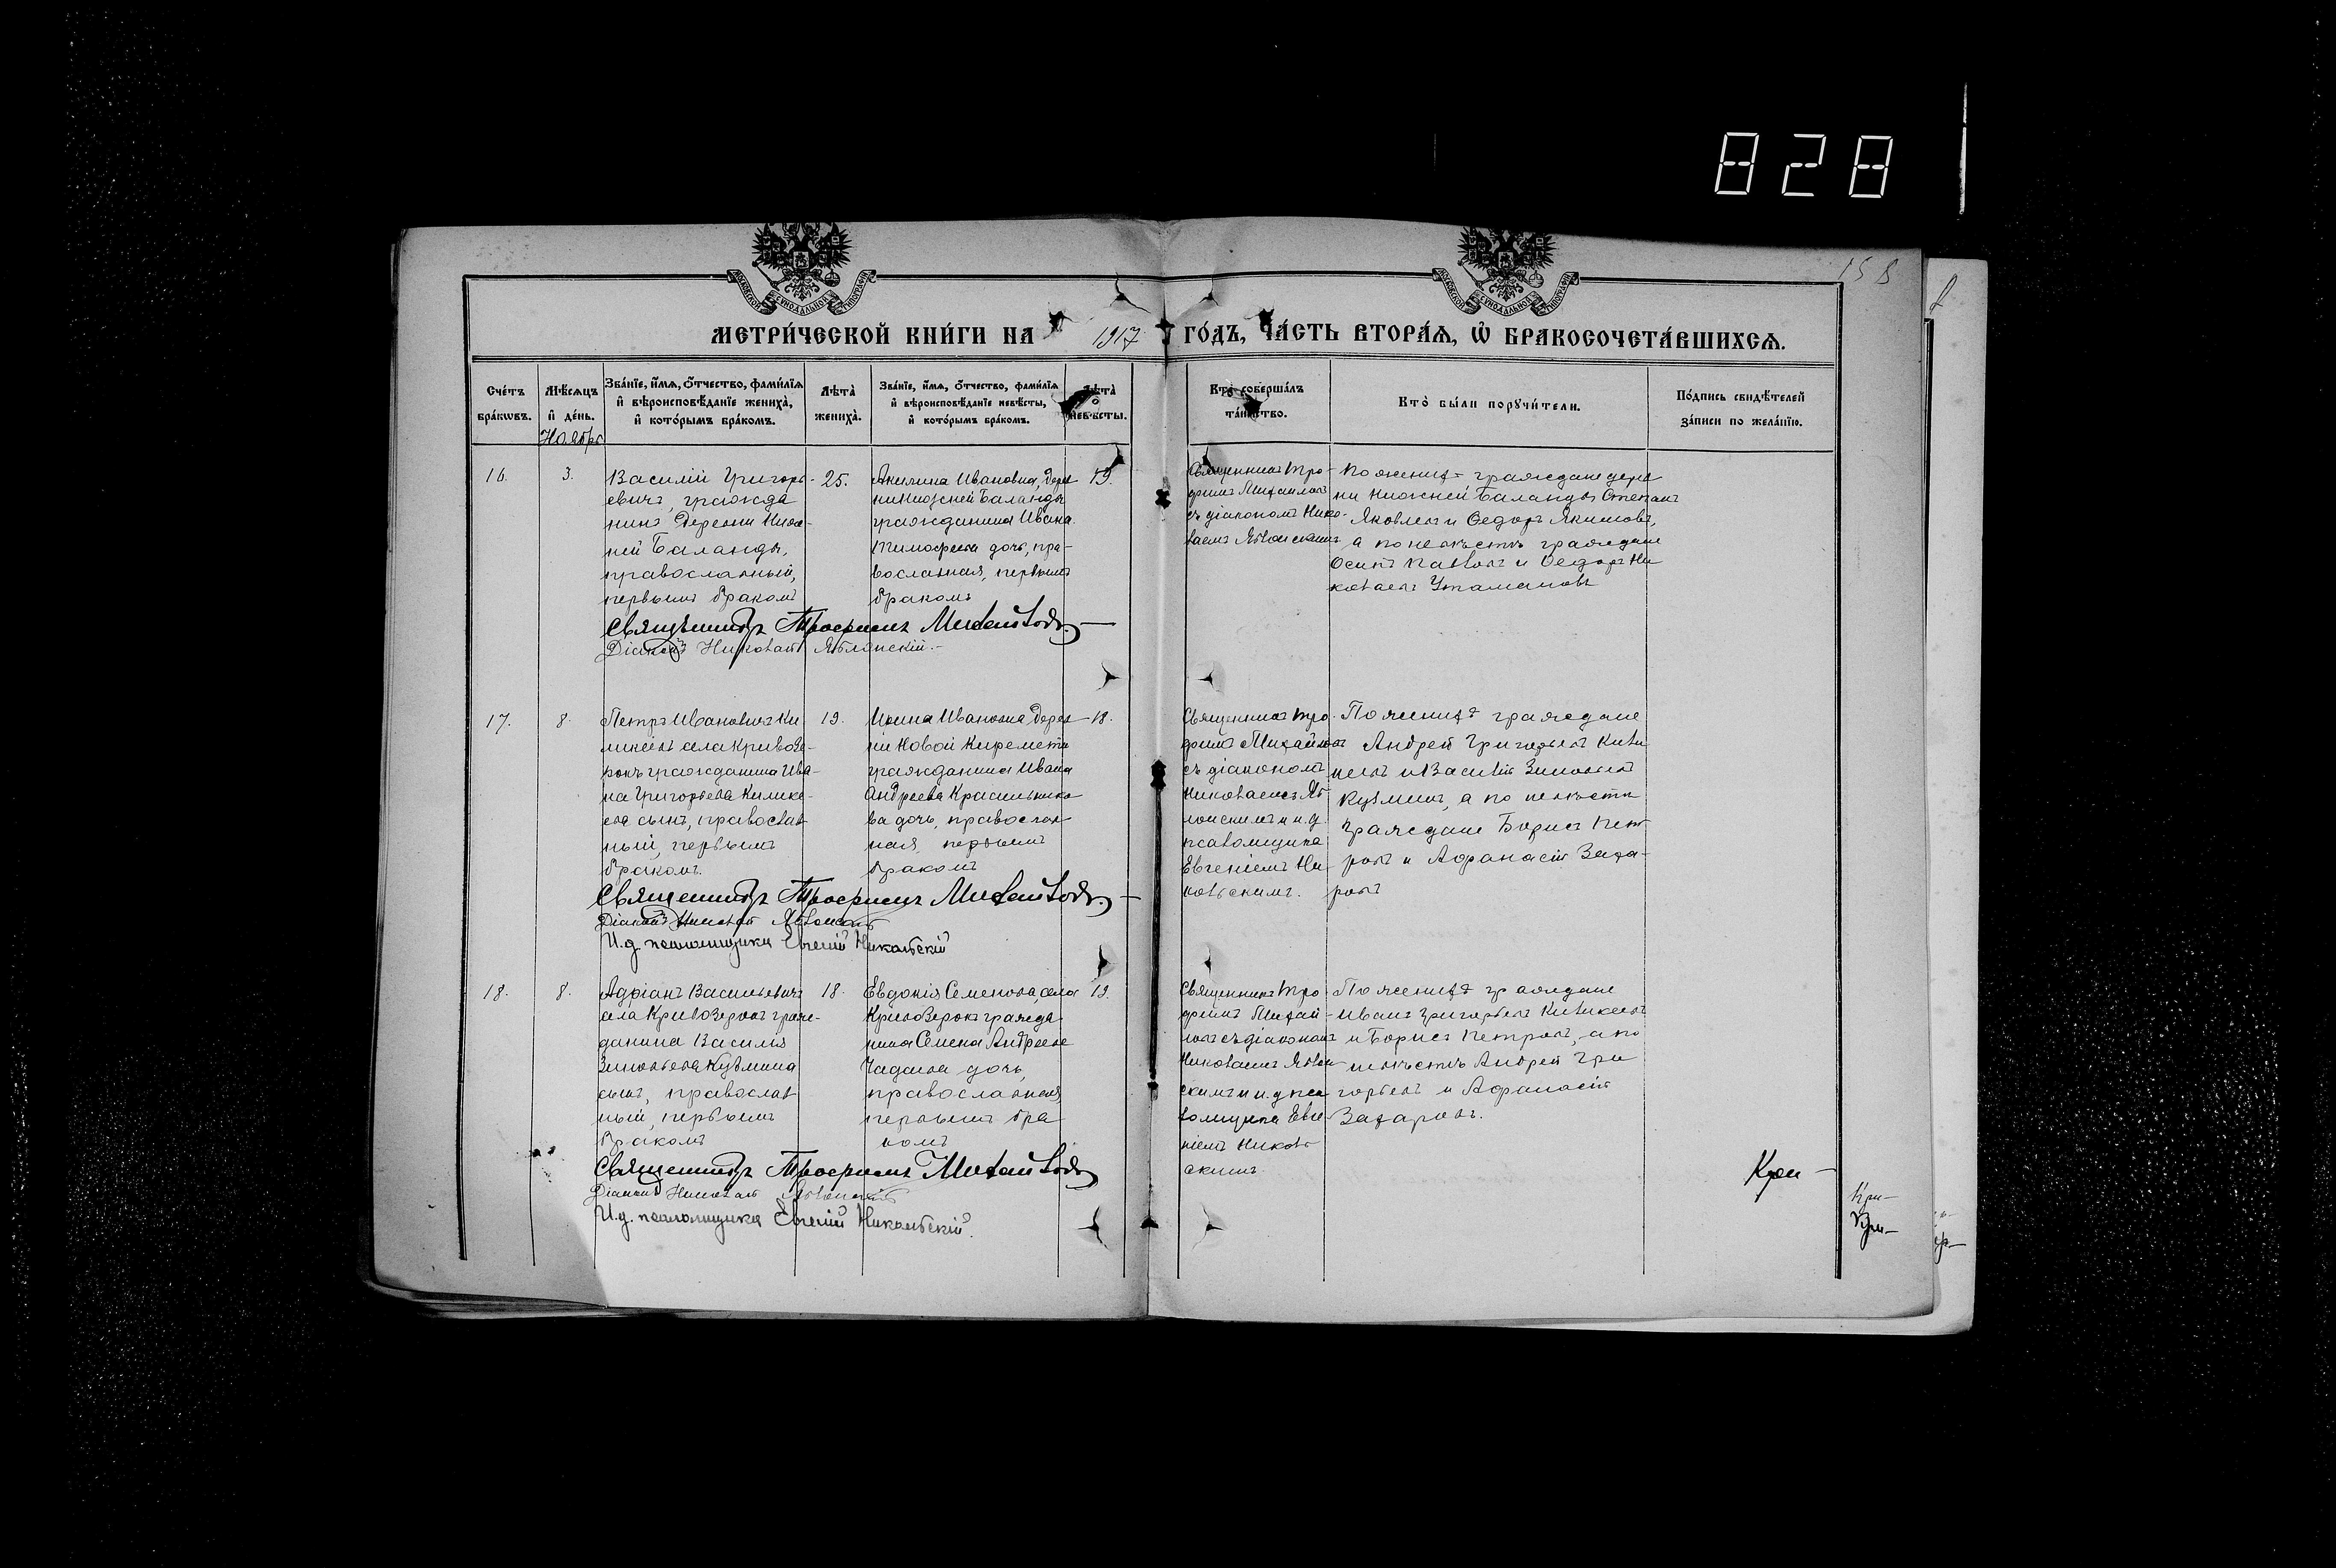 828
158
МЕТРИ́ЧЕСКОЙ КНИ́ГИ НА 1917 ГО́ДЪ, ЧА́СТЬ ВТОРА́Ѧ, Ѽ БРАКОСОЧЕТА́ВШИХСѦ.
Сче́тъ бра́кѡвъ.
Мѣ́сѧцъ и҆ де́нь.
Ноябрь
Зва́нїе, и҆́мѧ, ѻ҆́тчество, фами́лїѧ
и҆ вѣроисповѣ́данїе жениха̀,
и҆ кото́рымъ бра́комъ.
Лѣта̀ жениха̀.
Зва́нїе, и҆́мѧ, ѻ҆́тчество, фами́лїѧ
и҆ вѣроисповѣ́данїе невѣ́сты,
и҆ кото́рымъ бра́комъ.
Лѣта̀ невѣ́сты.
Кто̀ соверша́лъ
та́инство.
Кто̀ бы́ли порꙋчи́тели.
По́дпись свидѣ́телей
за́писи по жела́нїю.
16.
3.
Василій Григорь-
евичъ, гражда
нинъ деревни Ниж-
ней Баланды,
православный,
первымъ бракомъ
25.
Акилина Ивановна, дерев
ни Нижней Баланды
гражданина Ивана
Тимофеева дочь, пра-
вославная, первымъ
бракомъ
19.
Священникъ Тро-
фимъ Михайловъ
съ діакономъ Нико-
лаемъ Яблонскимъ
По женихѣ граждане дерев
ни Нижней Баланды Степанъ
Яковлевъ и Федоръ Якимовъ,
а по невѣстѣ граждане
Осипъ Павловъ и Федоръ Ни
колаевъ Утамановъ
Священникъ Трофимъ Михайловъ.
Діаконъ Николай Яблонскій.
17.
8.
Петръ Ивановичъ Ки
ликеевъ села Кривозе-
рокъ гражданина Ива-
на Григорьева Килике-
ева сынъ, православ
ный, первымъ
бракомъ.
19.
Ирина Ивановна дерев
ни Новой Киремети
гражданина Ивана
Андреева Красильнико
ва дочь, православ
ная, первымъ
бракомъ
18.
Священникъ Тро
фимъ Михайловъ
съ діакономъ
Николаемъ Яб
лонскимъ и и.д.
псаломщика
Евгеніемъ Ни
кольскимъ.
По женихѣ граждане
Андрей Григорьевъ Кили
кеевъ и Василій Зиновьевъ
Кузминъ, а по невѣстѣ
граждане Борисъ Пет
ровъ и Афанасій Заха-
ровъ
Священникъ Трофимъ Михайловъ.
Діаконъ Николай Яблонскій
И.д. псаломщика Евгеній Никольскій
18.
8.
Адріанъ Васильевичъ
села Кривозерокъ граж-
данина Василія
Зиновьева Кузмина
сынъ, православ
ный, первымъ
бракомъ
18.
Евдокія Семенова села
Кривозерокъ гражда
нина Семена Андреева
Чадаева дочь,
православная,
первымъ бра
комъ
19.
Священникъ Тро
фимъ Михай-
ловъ съ діакономъ
Николаемъ Яблон
скимъ и и.д. пса
ломщика Евге
ніемъ Николь
скимъ
По женихѣ граждане
Иванъ Григорьевъ Киликеевъ
и Борисъ Петровъ, а по
невѣстѣ Андрей Гри
горьевъ и Афанасій
Захаровъ.
Священникъ Трофимъ Михайловъ
Діаконъ Николай Яблонскій
И.д. псаломщика Евгеній Никольскій.
Кри-
Кри-